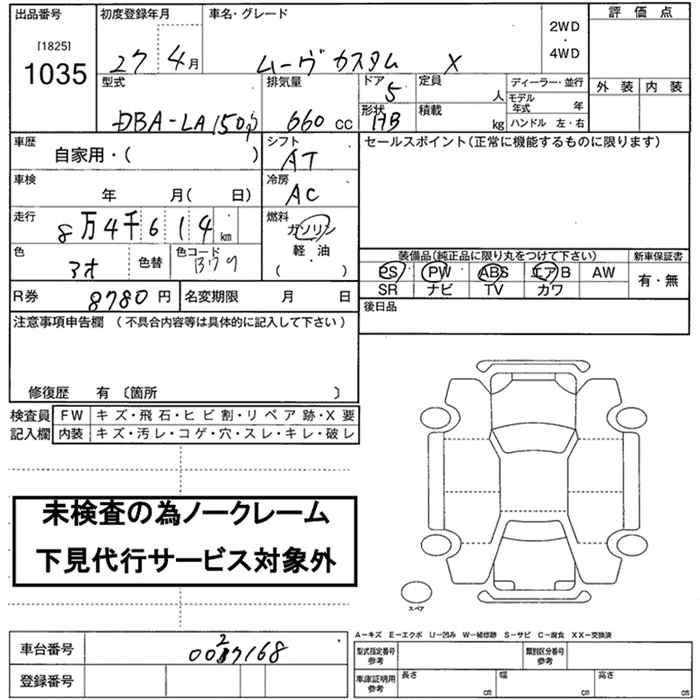 出品番号 初度登録年月 車名・グレード 評価点
[1825]
1035
27 4月 ムーヴカスタム X
2WD
・
4WD
外装 内装
型式 排気量 ドア 5 定員 人 ディーラー・並行
DBA-LA150 660 cc 形状 HB 積載 kg モデル年式 年
ハンドル 左・右
車歴 シフト セールスポイント(正常に機能するものに限ります)
自家用・( ) AT
車検 冷房
年 月( 日) AC
走行 燃料
8万4千614km ガソリン
軽・油
( )
色 色替 色コード
アオ B79
装備品(純正品に限り丸をつけて下さい) 新車保証書
PS PW ABS エアB AW 有・無
SR ナビ TV カワ
R券 8780円 名変期限 月 日 後日品
注意事項申告欄 (不具合内容等は具体的に記入して下さい)
修復歴 有 〔箇所 〕
検査員 FW キズ・飛石・ヒビ割・リペア跡・X要
記入欄 内装 キズ・汚レ・コゲ・穴・スレ・キレ・破レ
未検査の為ノークレーム
下見代行サービス対象外
スペア
A-キズ E-エクボ U-凹み W-補修跡 S-サビ C-腐食 XX-交換済
車台番号 0027168
型式指定番号 参考 類別区分番号 参考
登録番号
車庫証明用 参考 長さ cm 幅 cm 高さ cm